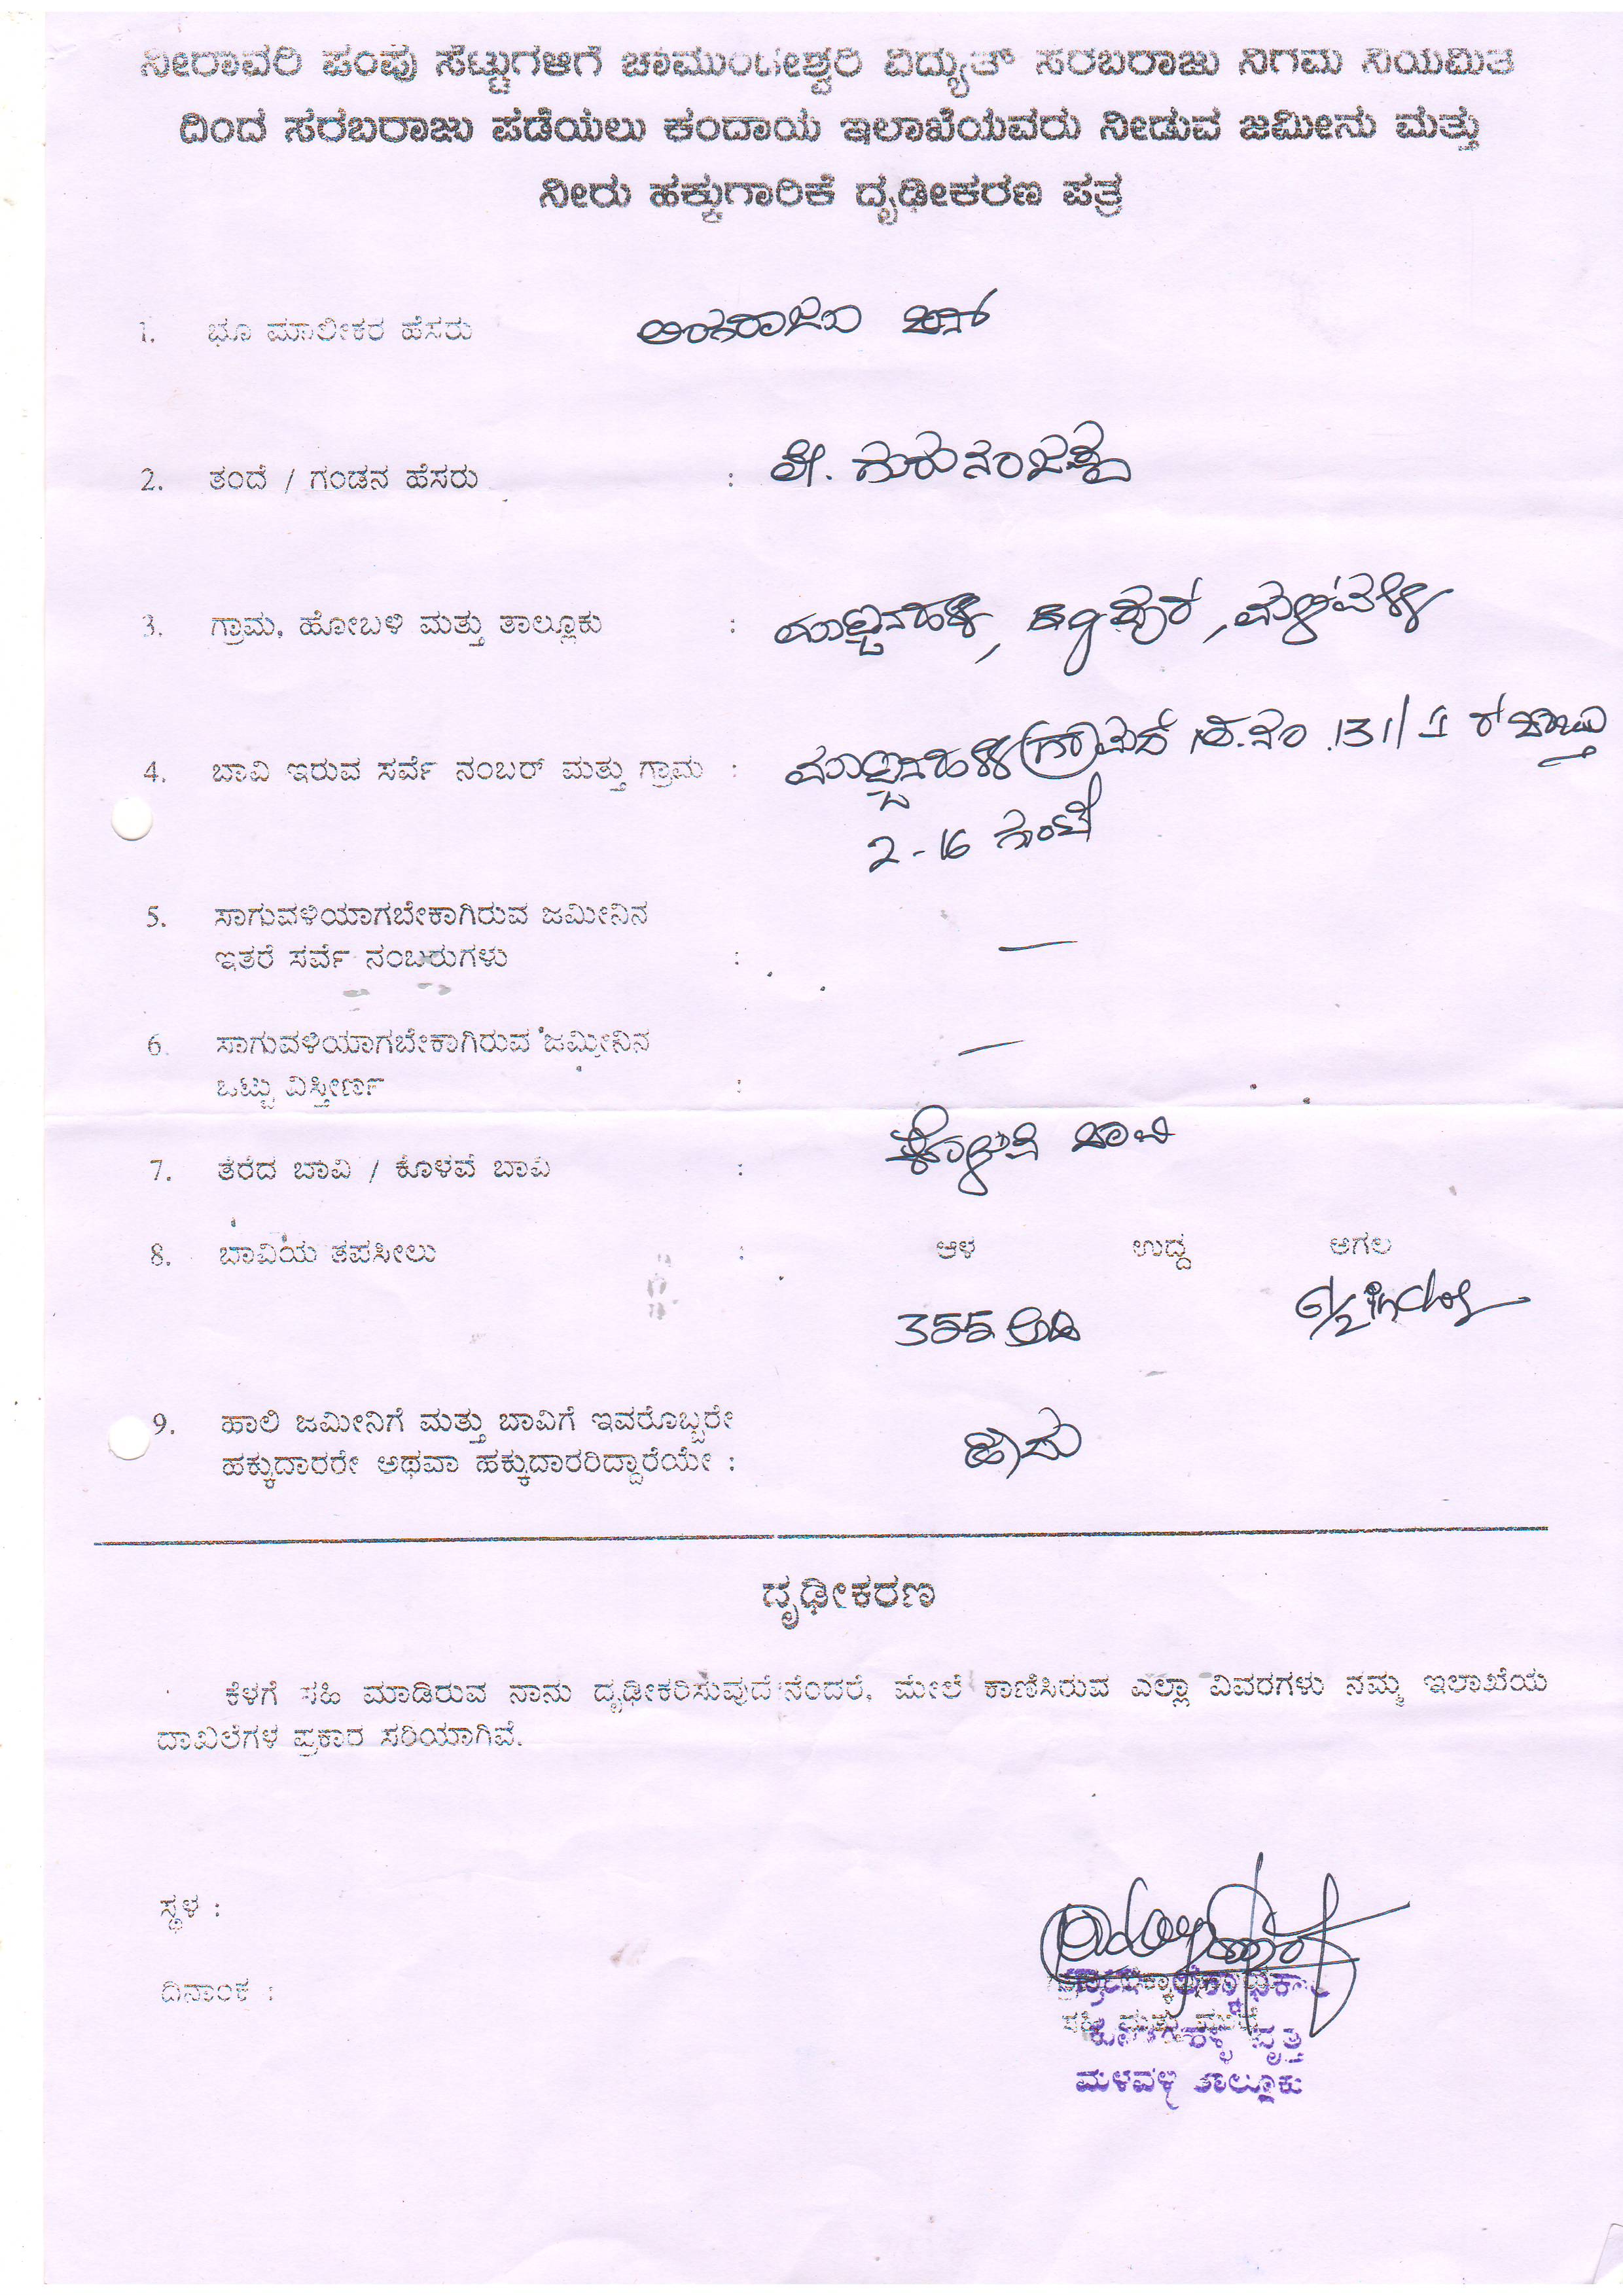 ನೀರಾವರಿ ಪಂಪು ಸೆಟ್ಟುಗಳಿಗೆ ಚಾಮುಂಡೇಶ್ವರಿ ವಿದ್ಯುತ್ ಸರಬರಾಜು ನಿಗಮ ನಿಯಮಿತ
ದಿಂದ ಸರಬರಾಜು ಪಡೆಯಲು ಕಂದಾಯ ಇಲಾಖೆಯವರು ನೀಡುವ ಜಮೀನು ಮತ್ತು
ನೀರು ಹಕ್ಕುಗಾರಿಕೆ ದೃಢೀಕರಣ ಪತ್ರ
1. ಭೂ ಮಾಲೀಕರ ಹೆಸರು ಬಿನ್
2. ತಂದೆ / ಗಂಡನ ಹೆಸರು : ಲೇ. ಗುರುನಂಜಪ್ಪ
3. ಗ್ರಾಮ, ಹೋಬಳಿ ಮತ್ತು ತಾಲ್ಲೂಕು : ಮಳವಳ್ಳಿ
4. ಬಾವಿ ಇರುವ ಸರ್ವೆ ನಂಬರ್ ಮತ್ತು ಗ್ರಾಮ : ಗ್ರಾಮದ ಸ.ನಂ. 131/1 ರ ಬಾಬ್ತು
2-16 ಗುಂಟೆ
5. ಸಾಗುವಳಿಯಾಗಬೇಕಾಗಿರುವ ಜಮೀನಿನ
ಇತರೆ ಸರ್ವೆ ನಂಬರುಗಳು : —
6. ಸಾಗುವಳಿಯಾಗಬೇಕಾಗಿರುವ ಜಮೀನಿನ
ಒಟ್ಟು ವಿಸ್ತೀರ್ಣ : —
7. ತೆರೆದ ಬಾವಿ / ಕೊಳವೆ ಬಾವಿ : ಕೊಳವೆ ಬಾವಿ
8. ಬಾವಿಯ ತಪಸೀಲು : ಆಳ ಉದ್ದ ಅಗಲ
355 ಅಡಿ 6 1/2 inches
9. ಹಾಲಿ ಜಮೀನಿಗೆ ಮತ್ತು ಬಾವಿಗೆ ಇವರೊಬ್ಬರೇ
ಹಕ್ಕುದಾರರೇ ಅಥವಾ ಹಕ್ಕುದಾರರಿದ್ದಾರೆಯೇ : ಹೌದು
ದೃಢೀಕರಣ
ಕೆಳಗೆ ಸಹಿ ಮಾಡಿರುವ ನಾನು ದೃಢೀಕರಿಸುವುದೆನೆಂದರೆ, ಮೇಲೆ ಕಾಣಿಸಿರುವ ಎಲ್ಲಾ ವಿವರಗಳು ನಮ್ಮ ಇಲಾಖೆಯ
ದಾಖಲೆಗಳ ಪ್ರಕಾರ ಸರಿಯಾಗಿವೆ.
ಸ್ಥಳ :
ದಿನಾಂಕ :
ವೃತ್ತ
ಮಳವಳ್ಳಿ ತಾಲ್ಲೂಕು